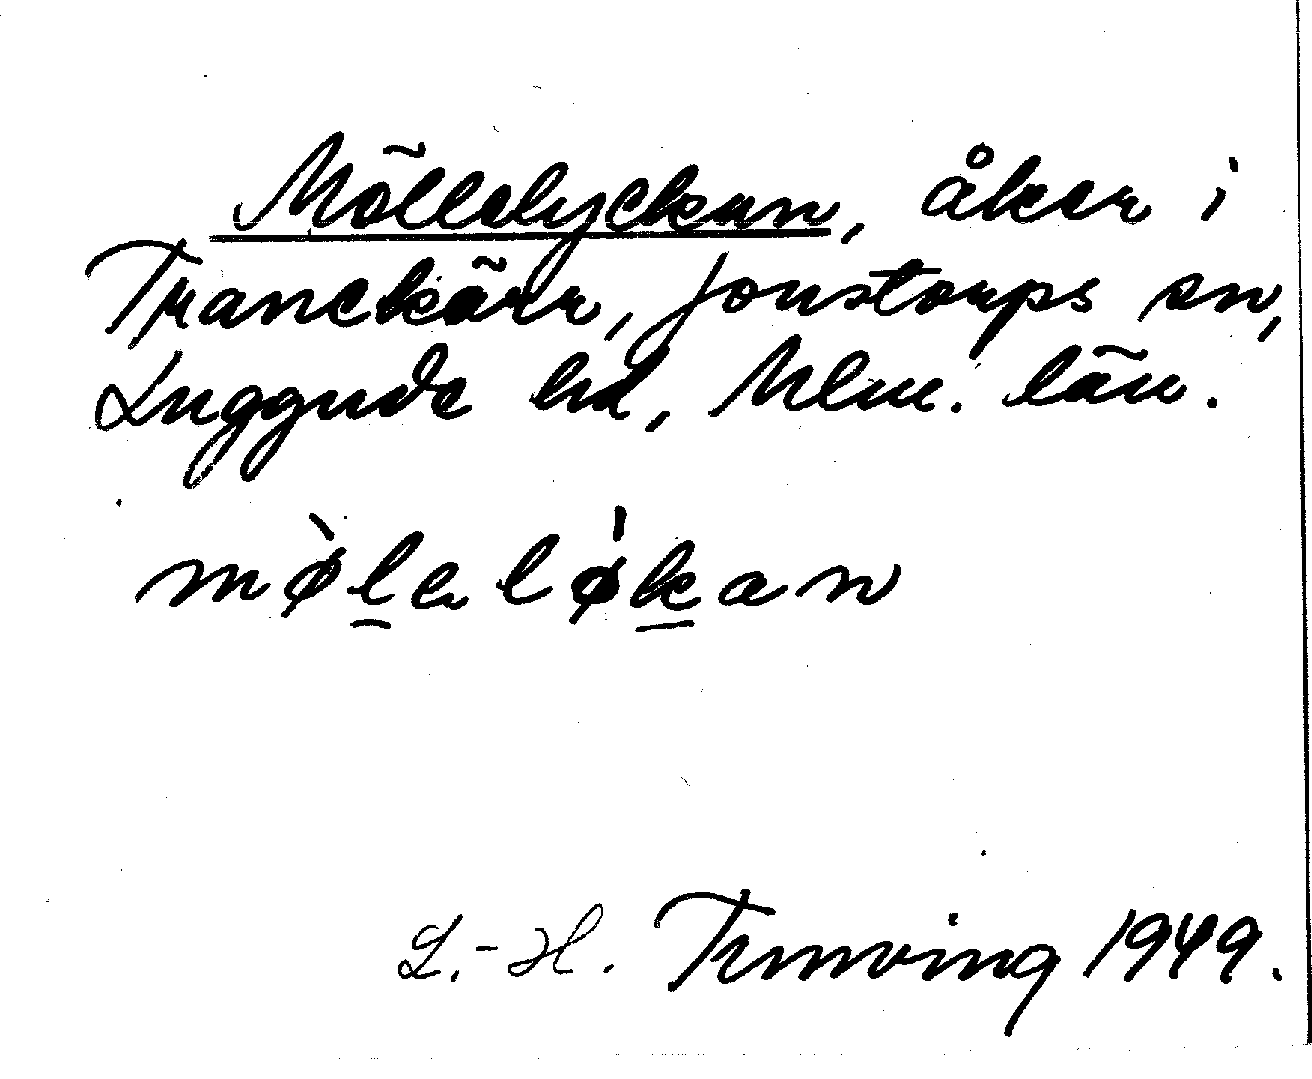 Möllelyckan, åker i
Tranekärr, Jonstorps sn,
Luggude hd, Mlm. län.
møḻeløḵan
L.-H. Ternving 1949.